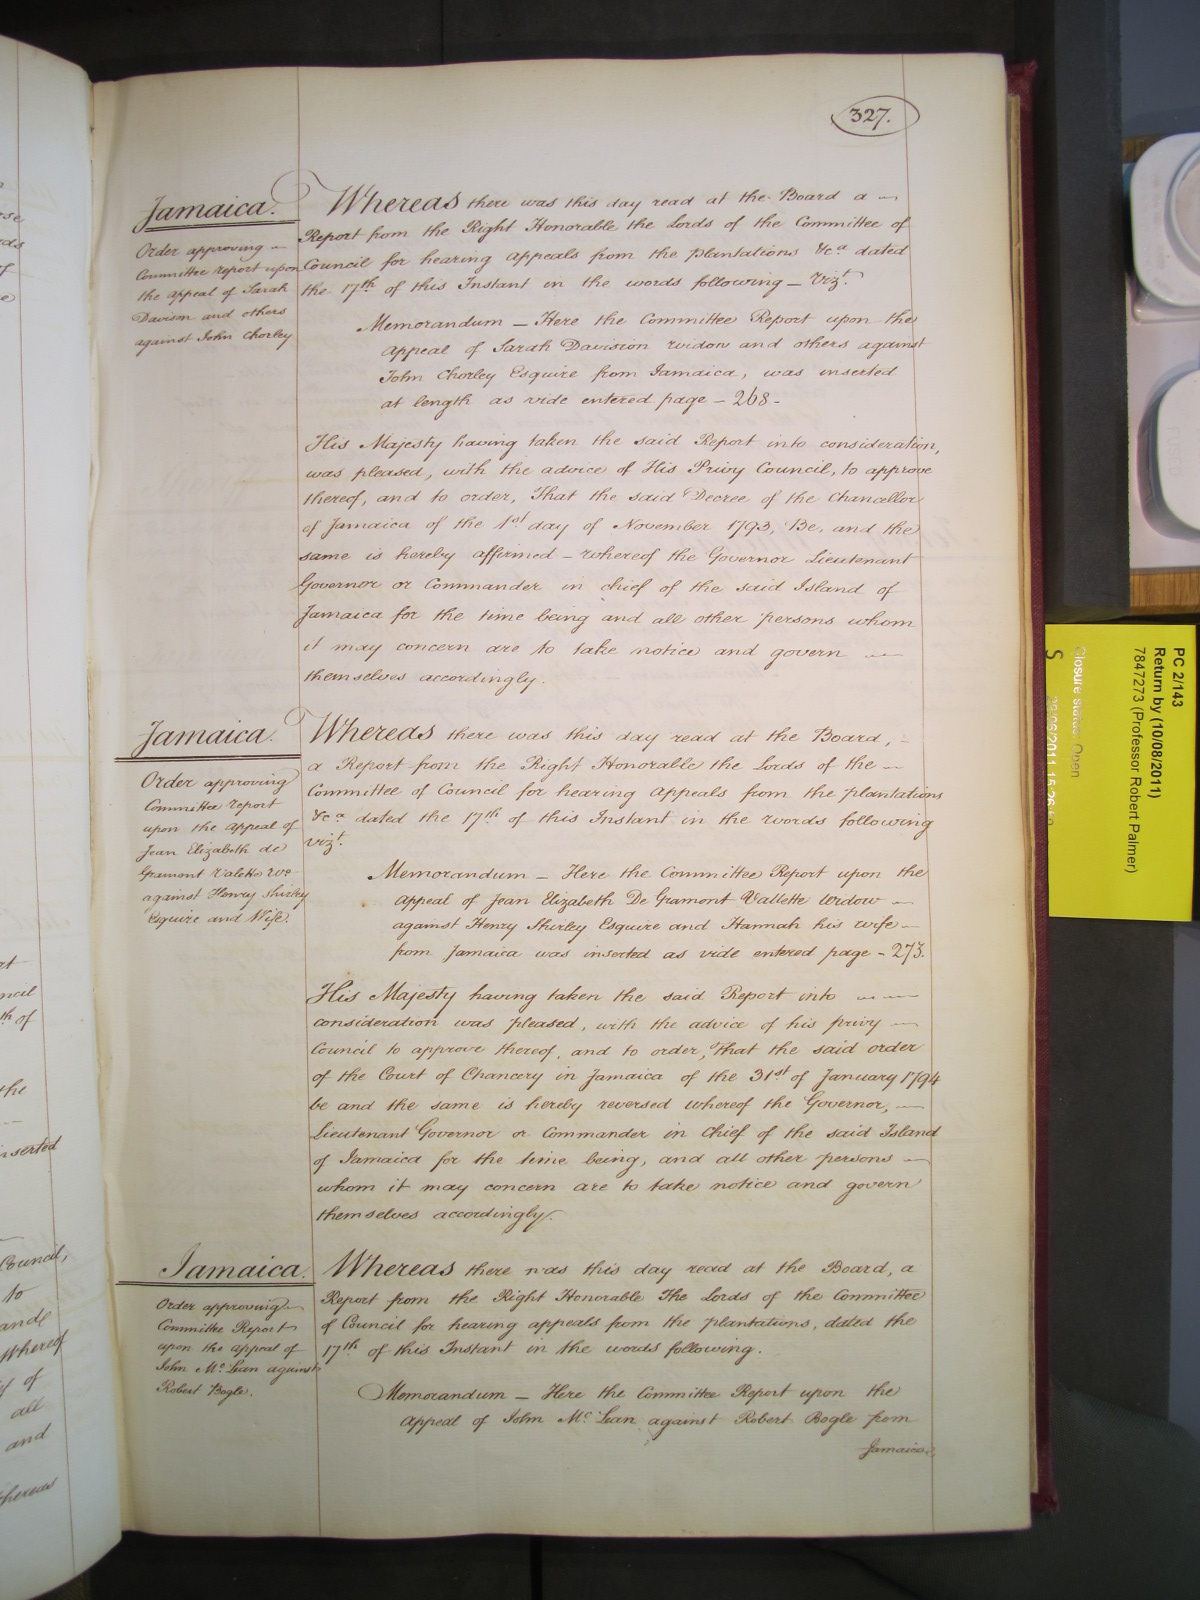 327.
Jamaica.
Order approving
Committee report upon
the appeal of Sarah
Davison and others
against John Chorley
Whereas there was this day read at the Board a
Report from the Right Honorable the Lords of the Committee of
Council for hearing Appeals from the Plantations &ca dated
the 17th of this Instant in the words following – Vizt.
Memorandum – Here the Committee Report upon the
appeal of Sarah Davison widow and others against
John Chorley Esquire from Jamaica, was inserted
at length as vide entered page – 268 –
His Majesty having taken the said Report into consideration,
was pleased, with the advice of His Privy Council, to approve
thereof, and to order, That the said Decree of the Chancellor
of Jamaica of the 1st day of November 1793, Be, and the
same is hereby affirmed – whereof the Governor Lieutenant
Governor or Commander in chief of the said Island of
Jamaica for the time being and all other persons whom
it may concern are to take notice and govern
themselves accordingly.
Jamaica.
Order approving
Committee report
upon the appeal of
Jean Elizabeth de
Gramont Valette
against Henry Shirley
Esquire and Wife.
Whereas there was this day read at the Board, –
a Report from the Right Honorable the Lords of the –
Committee of Council for hearing Appeals from the plantations
&ca dated the 17th of this Instant in the words following
vizt.
Memorandum – Here the Committee Report upon the
appeal of Jean Elizabeth De Gramont Vallette Widow –
against Henry Shirley Esquire and Hannah his wife –
from Jamaica was inserted as vide entered page – 273.
His Majesty having taken the said Report into
consideration was pleased, with the advice of his privy
Council to approve thereof, and to order, That the said order
of the Court of Chancery in Jamaica of the 31st of January 1794
be and the same is hereby reversed whereof the Governor, –
Lieutenant Governor or Commander in Chief of the said Island
of Jamaica for the time being, and all other persons –
whom it may concern are to take notice and govern
themselves accordingly.
Jamaica.
Order approving
Committee Report
upon the appeal of
John Mc Lean against
Robert Bogle.
Whereas there was this day read at the Board, a
Report from the Right Honorable The Lords of the Committee
of Council for hearing appeals from the plantations, dated the
17th of this Instant in the words following.
Memorandum – Here the Committee Report upon the
appeal of John Mc Lean against Robert Bogle from
Jamaica
inserted
Council,
to
Whereof
of
all
and
PC 2/143
Return by (10/08/2011)
7847273 (Professor Robert Palmer)
Closure status: Open
S